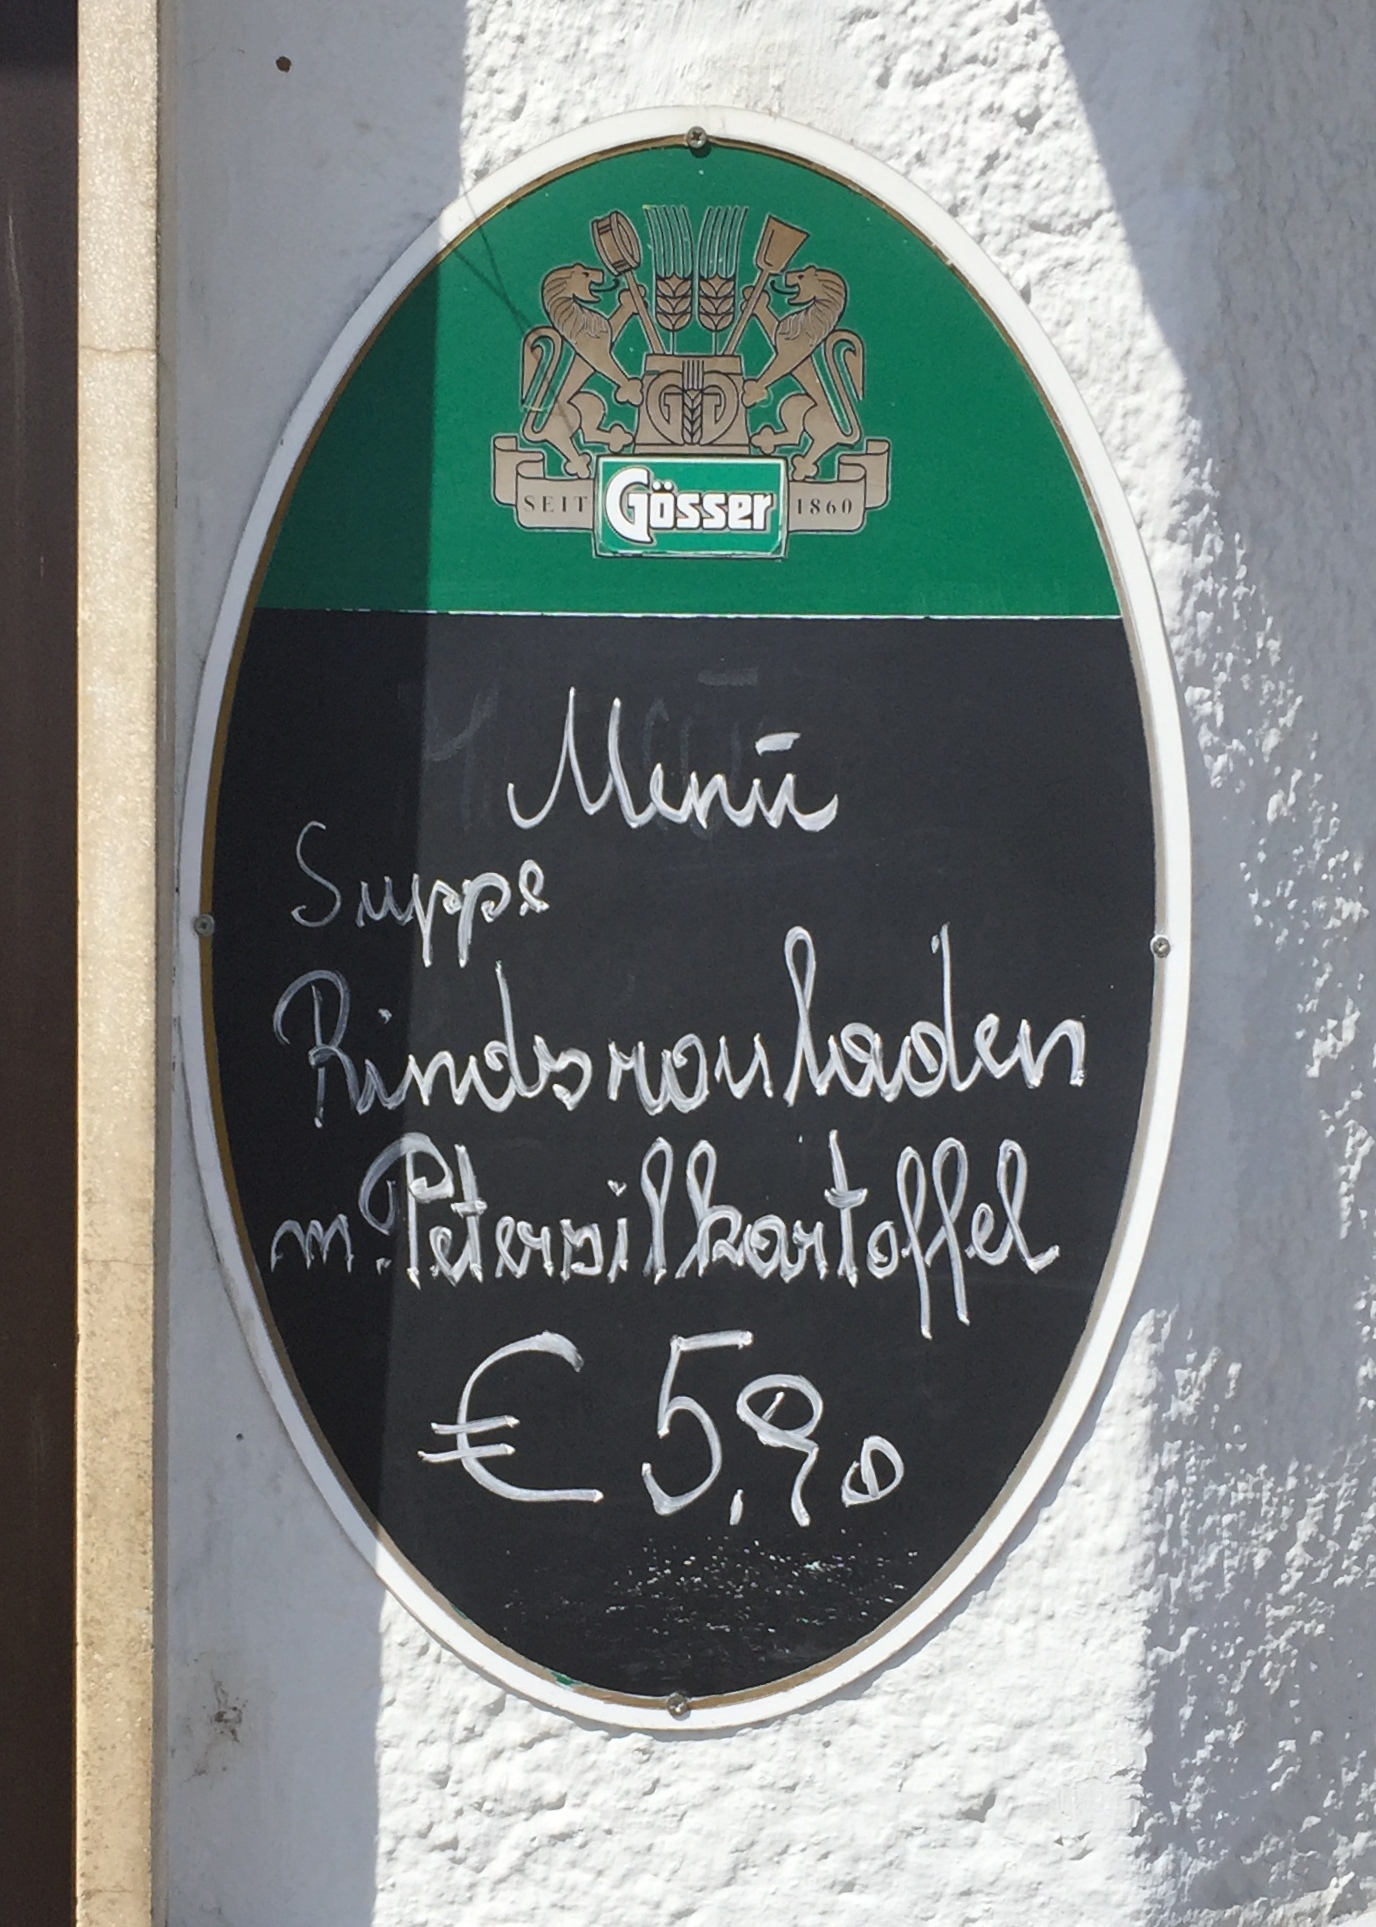 GG
SEIT Gösser 1860
Menü
Suppe
Rindsrouladen
m. Petersilkartoffel
€ 5,90